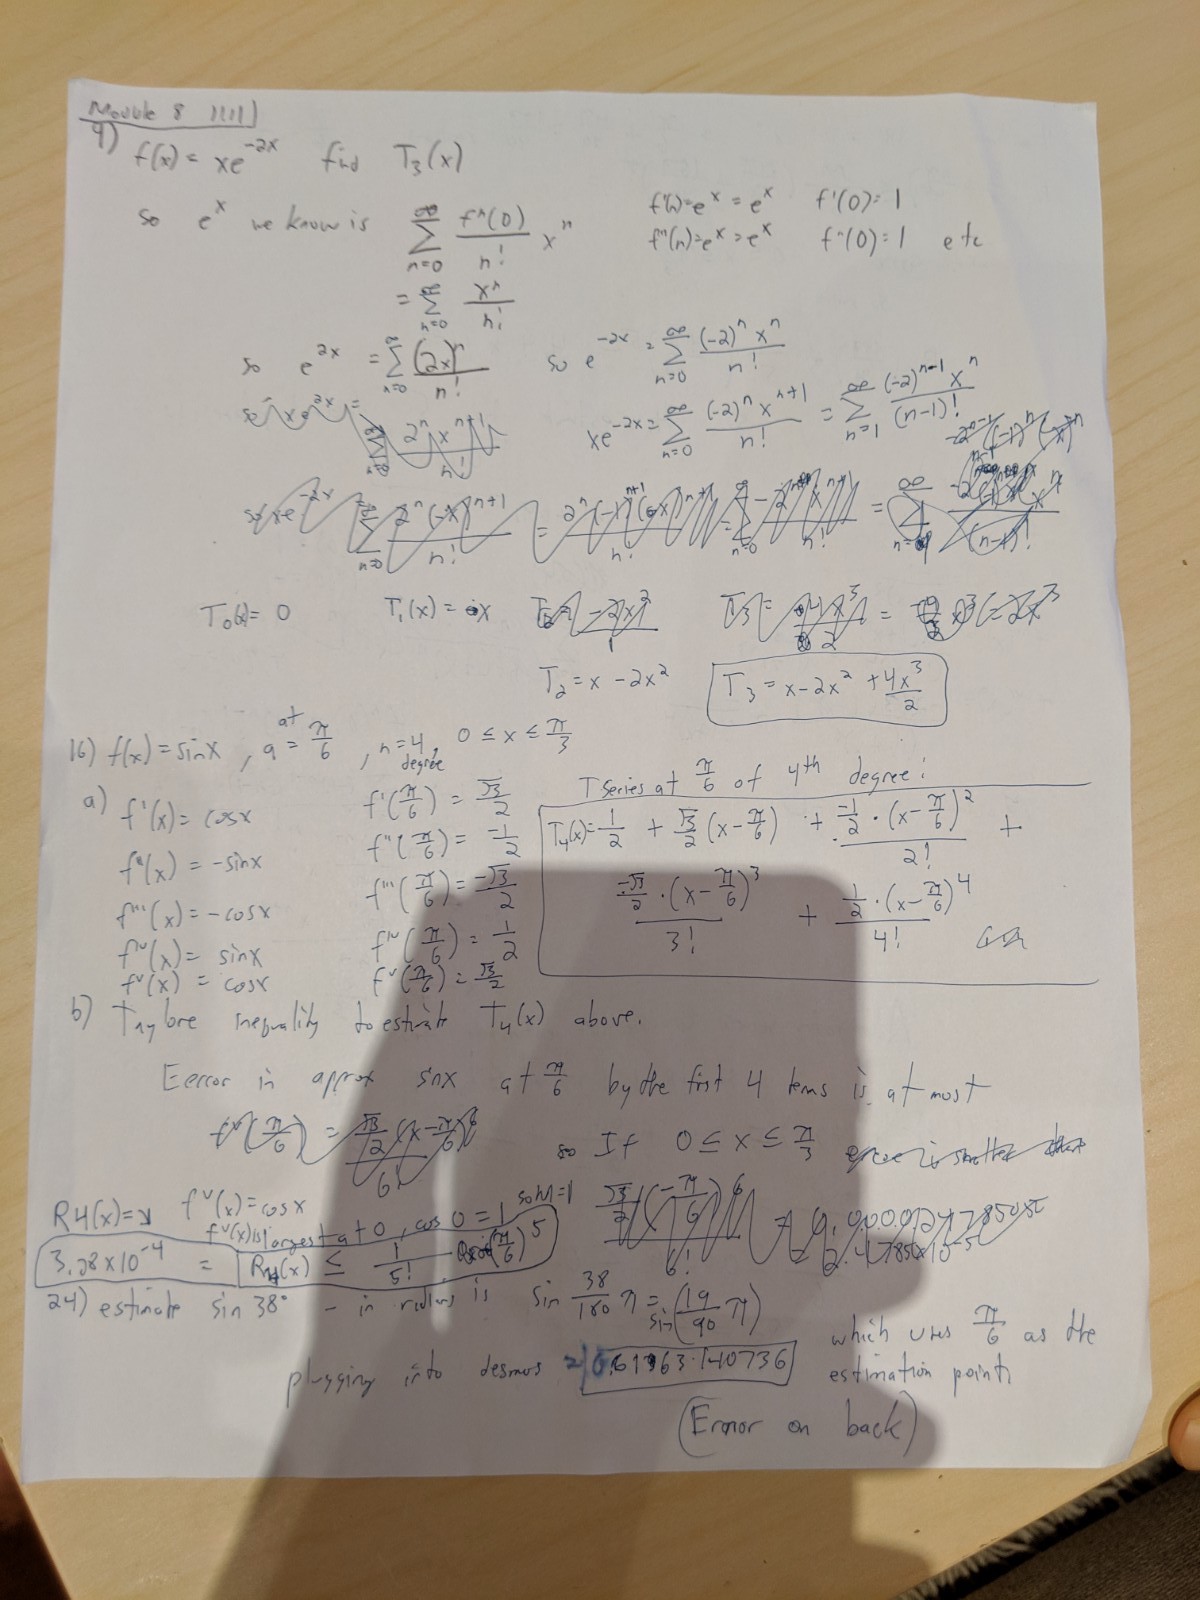 Module 8 11.11
9) f(x) = xe^-2x find T₃(x)
so e^x we know is ∑_{n=0}^∞ fⁿ(0)/n! xⁿ
f'(x)=e^x = e^x f'(0)=1
f''(n)=e^x=e^x f''(0)=1 etc
= ∑_{n=0}^∞ xⁿ/n!
so e^2x = ∑_{n=0}^∞ (2x)ⁿ/n! so e^-2x = ∑_{n=0}^∞ (-2)ⁿxⁿ/n!
xe^-2x = ∑_{n=0}^∞ (-2)ⁿx^(n+1)/n! = ∑_{n=1}^∞ (-2)^(n-1)xⁿ/(n-1)!
T₀(x)= 0 T₁(x) = x
T₂ = x - 2x² T₃ = x-2x² + 4x³/2
16) f(x) = sinx, at a = π/6, n=4 degree, 0 ≤ x ≤ π/3
a) f'(x) = cosx f'(π/6) = √3/2
f''(x) = -sinx f''(π/6) = -1/2
f'''(x) = -cosx f'''(π/6) = -√3/2
f^IV(x) = sinx f^IV(π/6) = 1/2
f^V(x) = cosx f^V(π/6) = √3/2
T series at π/6 of 4th degree:
T₄(x) = 1/2 + √3/2 (x-π/6) + -1/2 · (x-π/6)²/2! +
-√3/2 · (x-π/6)³/3! + 1/2 · (x-π/6)⁴/4!
b) Taylore inequality to estimate T₄(x) above.
Eerror in approx sinx at π/6 by the first 4 terms is at most
so If 0 ≤ x ≤ π/3
R4(x)= f^V(x) = cosx
f^V(x) is largest at 0, cos 0 = 1 so M=1
3.28 x 10^-4 = R₄(x) ≤ 1/5! (π/6)^5
24) estimate sin 38° - in radians is sin 38/180 π = sin(19/90 π)
plugging into desmos which uses π/6 as the estimation point
(Error on back)